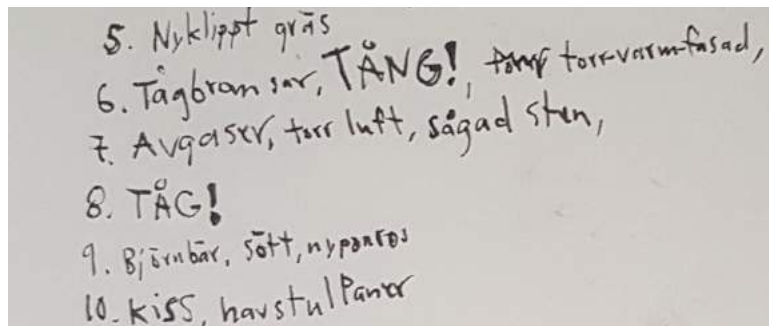 5. Nyklippt gräs
6. Tågbromsar, TÅNG!, torr-varm-fasad,
7. Avgaser, torr luft, sågad sten,
8. TÅG!
9. Björnbär, sött, nyponros
10. kiss, havstulpaner